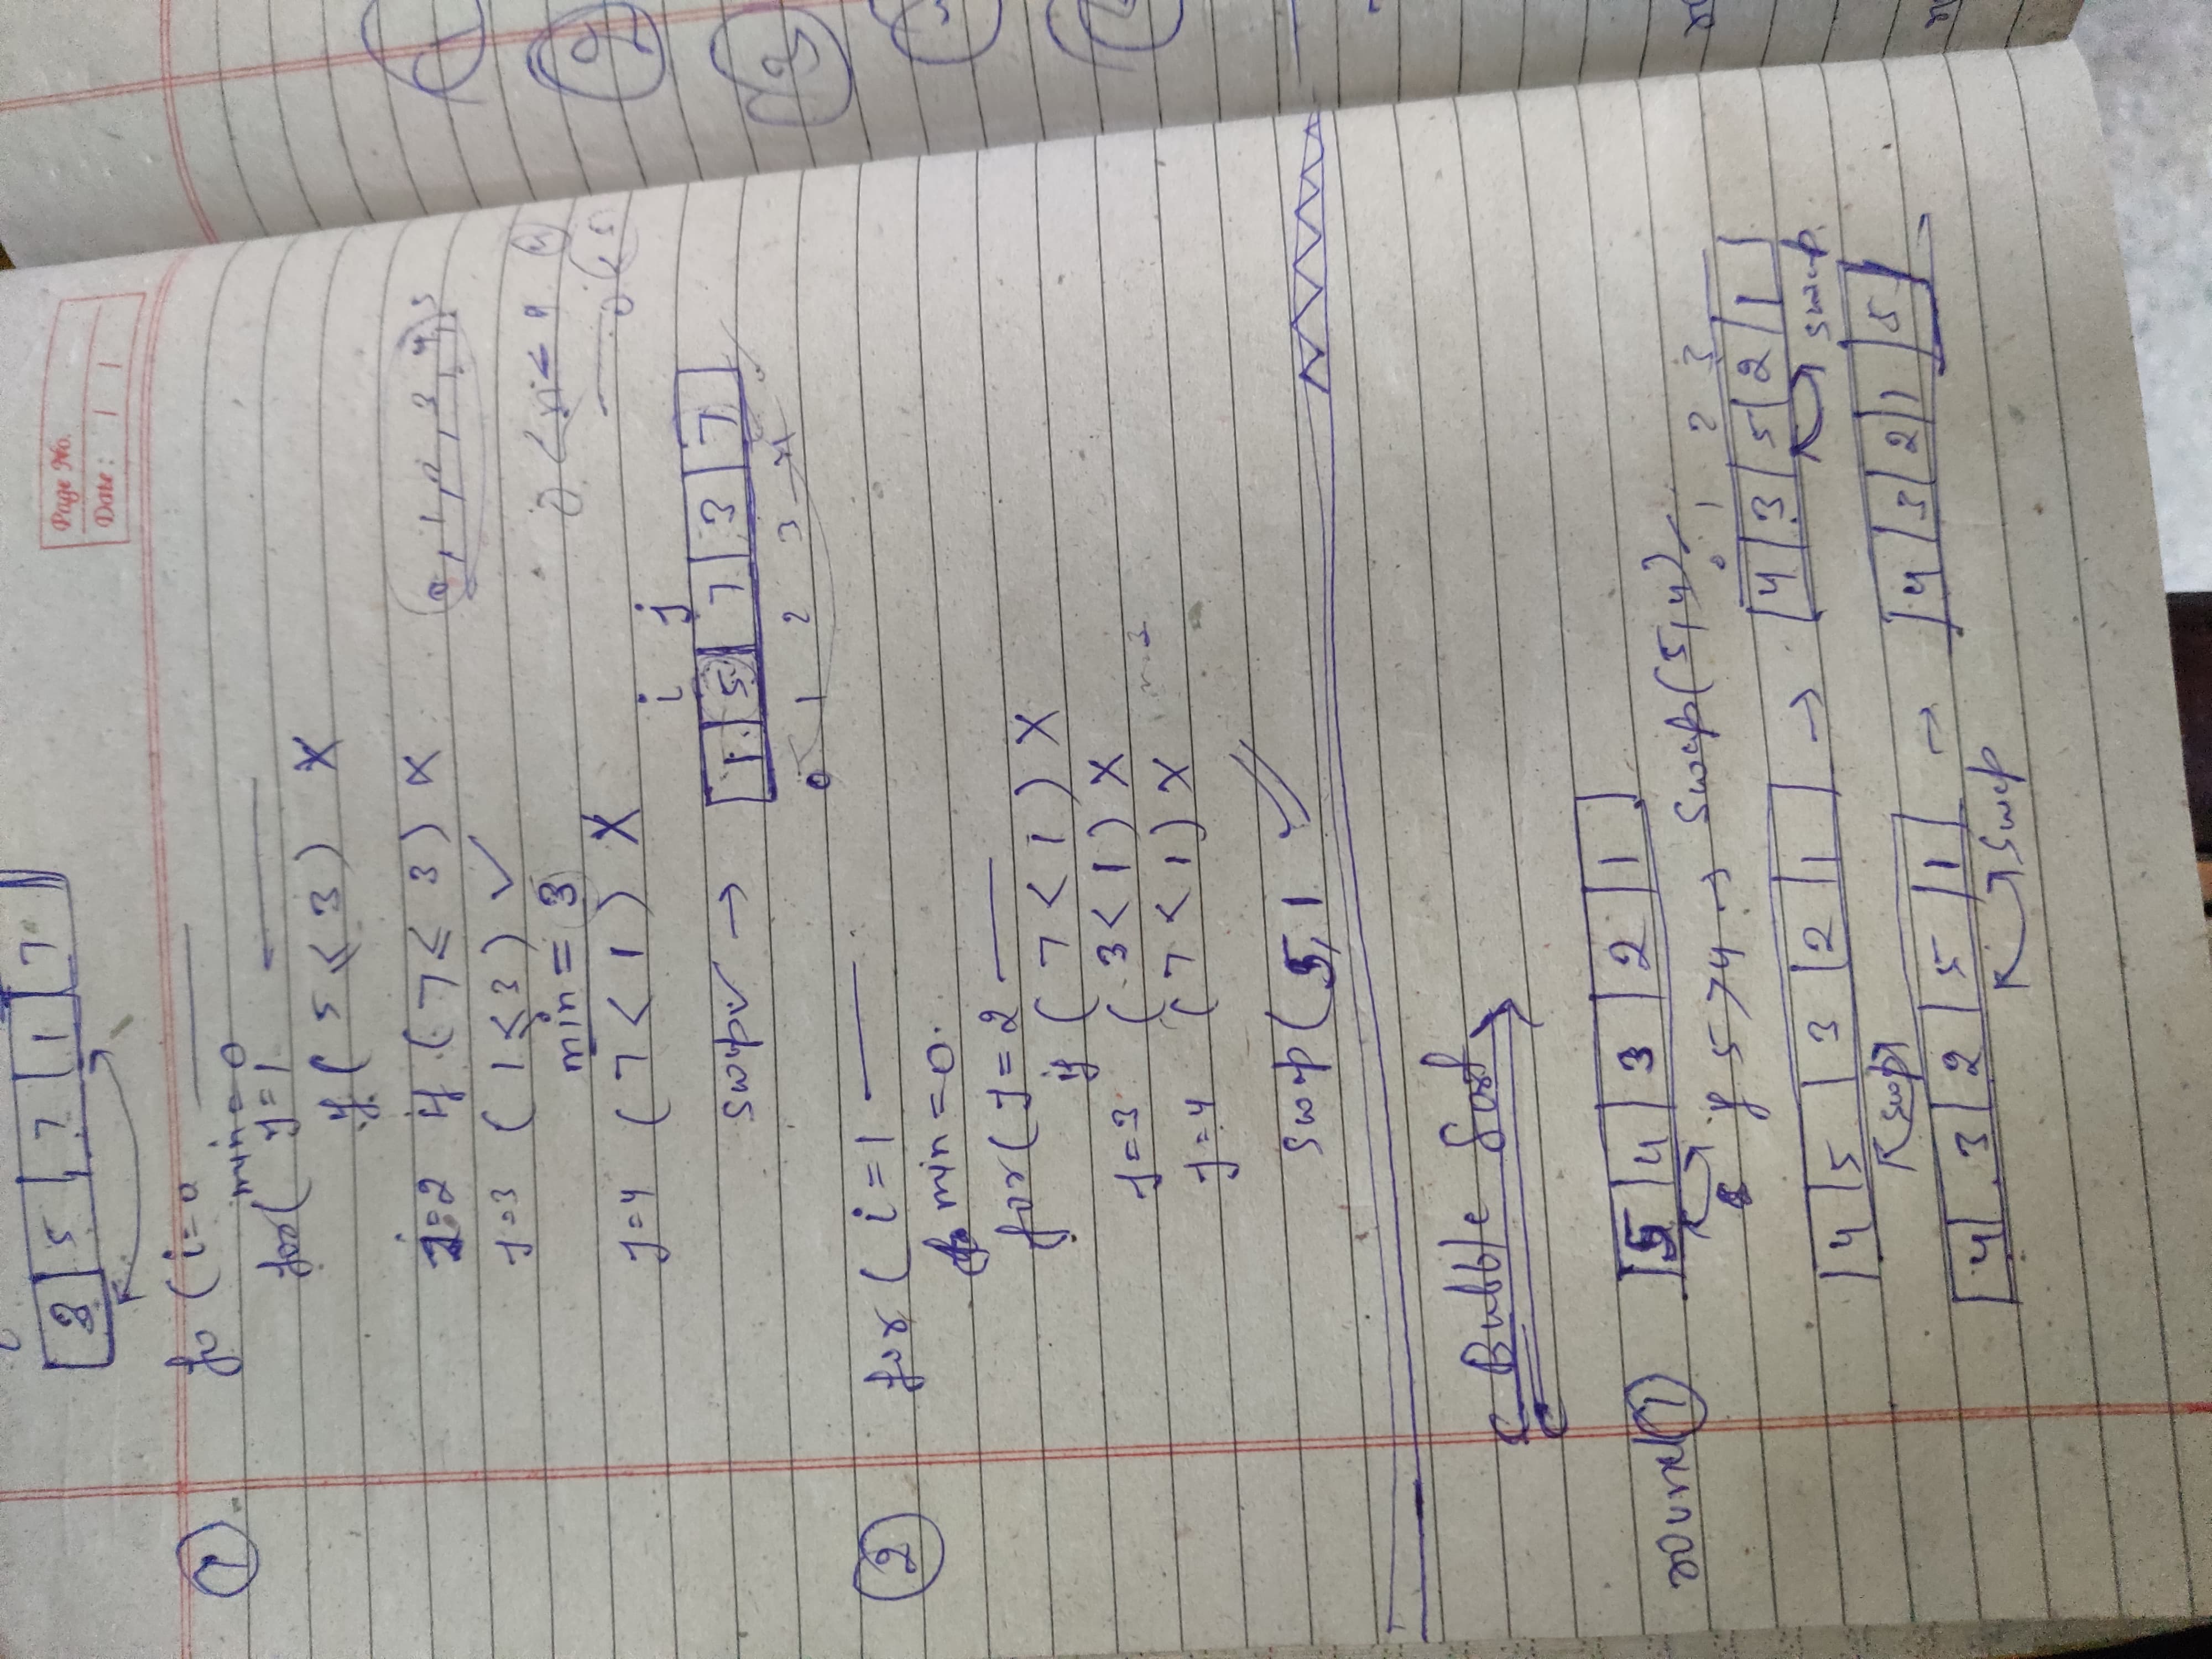 Page No.
Date:
3 5 7 1 7
1
fo (i=0
min=0
for( j=1
if( 5 ≤ 3) X
j=2 if (7 ≤ 3) X
j=3 (1 ≤ 3) ✓
min = 3
j=4 (7 < 1) X
i j
swap → 1 5 7 3 7
0 1 2 3
2
for (i=1
min=0.
for(j=2
if (7 < 1) X
j=3 (3 < 1) X
j=4 (7 < 1) X
swap (5, 1 ✓
Bubble Sort
round 1
5 4 3 2 1
if 5 > 4 → swap(5,4)
0 1 2 3
4 5 3 2 1 → 4 3 5 2 1
swap swap
4 3 2 5 1 → 4 3 2 1 5
swap